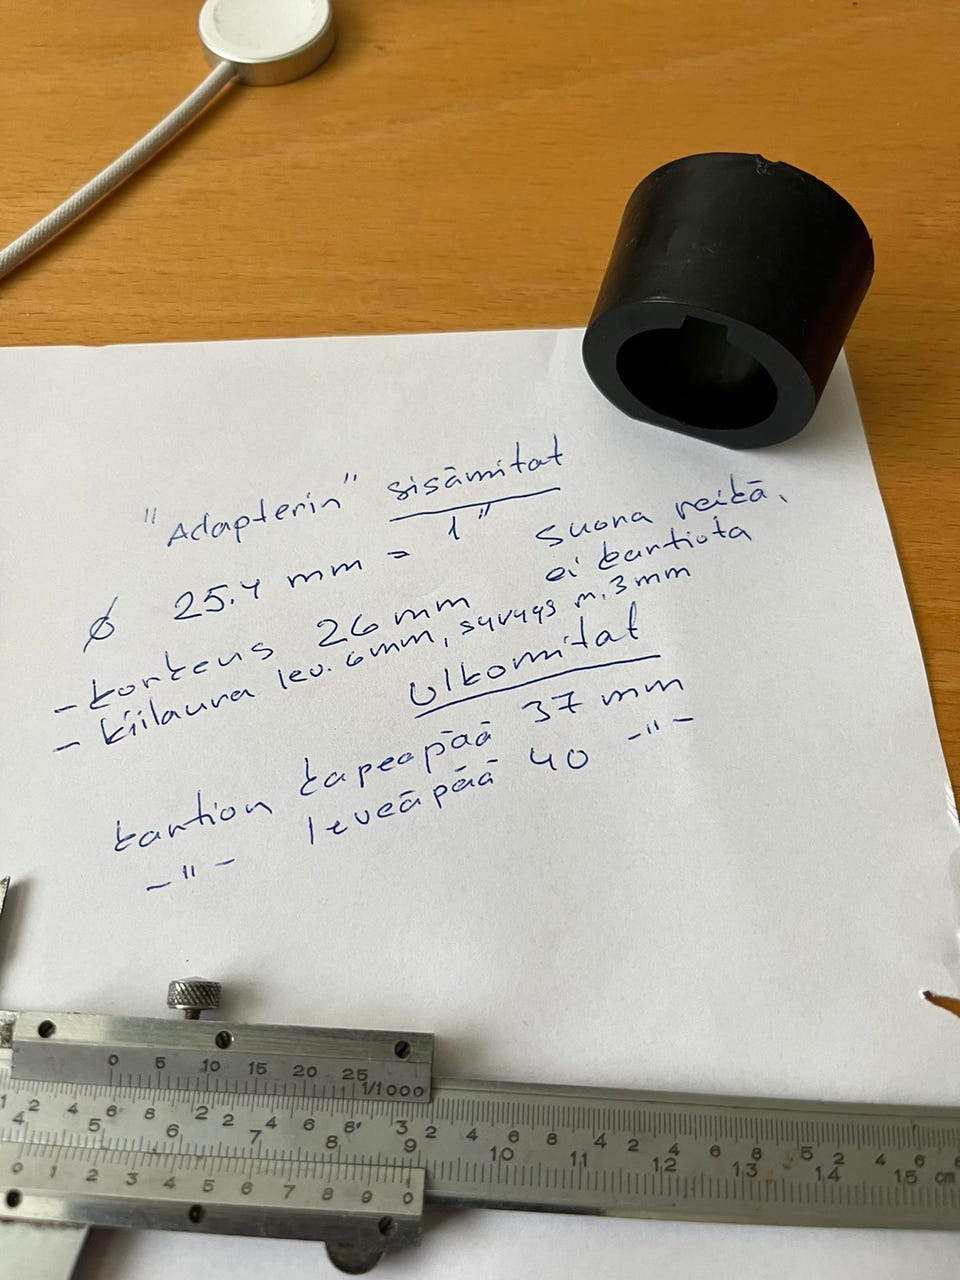 "Adapterin" sisämitat
Ø 25.4 mm = 1"
suora reikä,
ei kartiota
- korkeus 26 mm
- kiilaura lev. 6mm, syvyys n. 3mm
Ulkomitat
kartion kapeapää 37 mm
-"- leveäpää 40 -"-
0 5 10 15 20 25
1/1000
1 2 4 6 8 2 2 4 6 8 3 2 4 6 8 4 2 4 6 8 5 2 4 6
4 5 6 7 8 9 10 11 12 13 14 15 cm
0 1 2 3 4 5 6 7 8 9 0